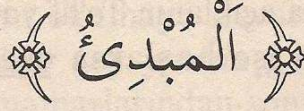 اَلْمُبْدِئُ